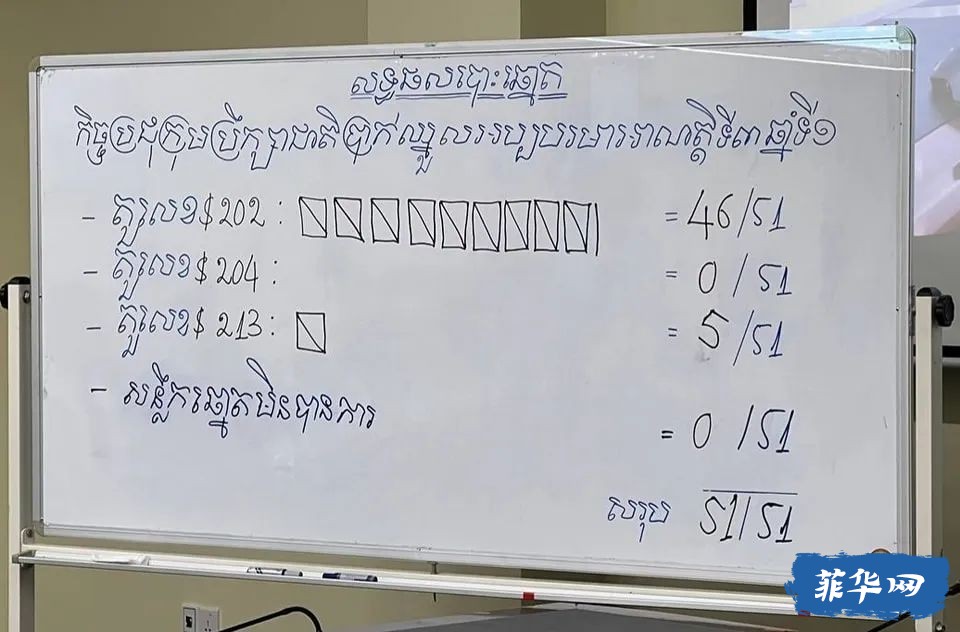 លទ្ធផលបោះឆ្នោត
កិច្ចប្រជុំក្រុមប្រឹក្សាជាតិប្រាក់ឈ្នួលអប្បបរមារអាណត្តិទី៣ ឆ្នាំទី១
- តួរលេខ $ 202 : = 46/51
- តួរលេខ $ 204 : = 0/51
- តួរលេខ $ 213 : = 5/51
- សន្លឹកឆ្នោតមិនបានការ = 0/51
សរុប 51/51
菲华网